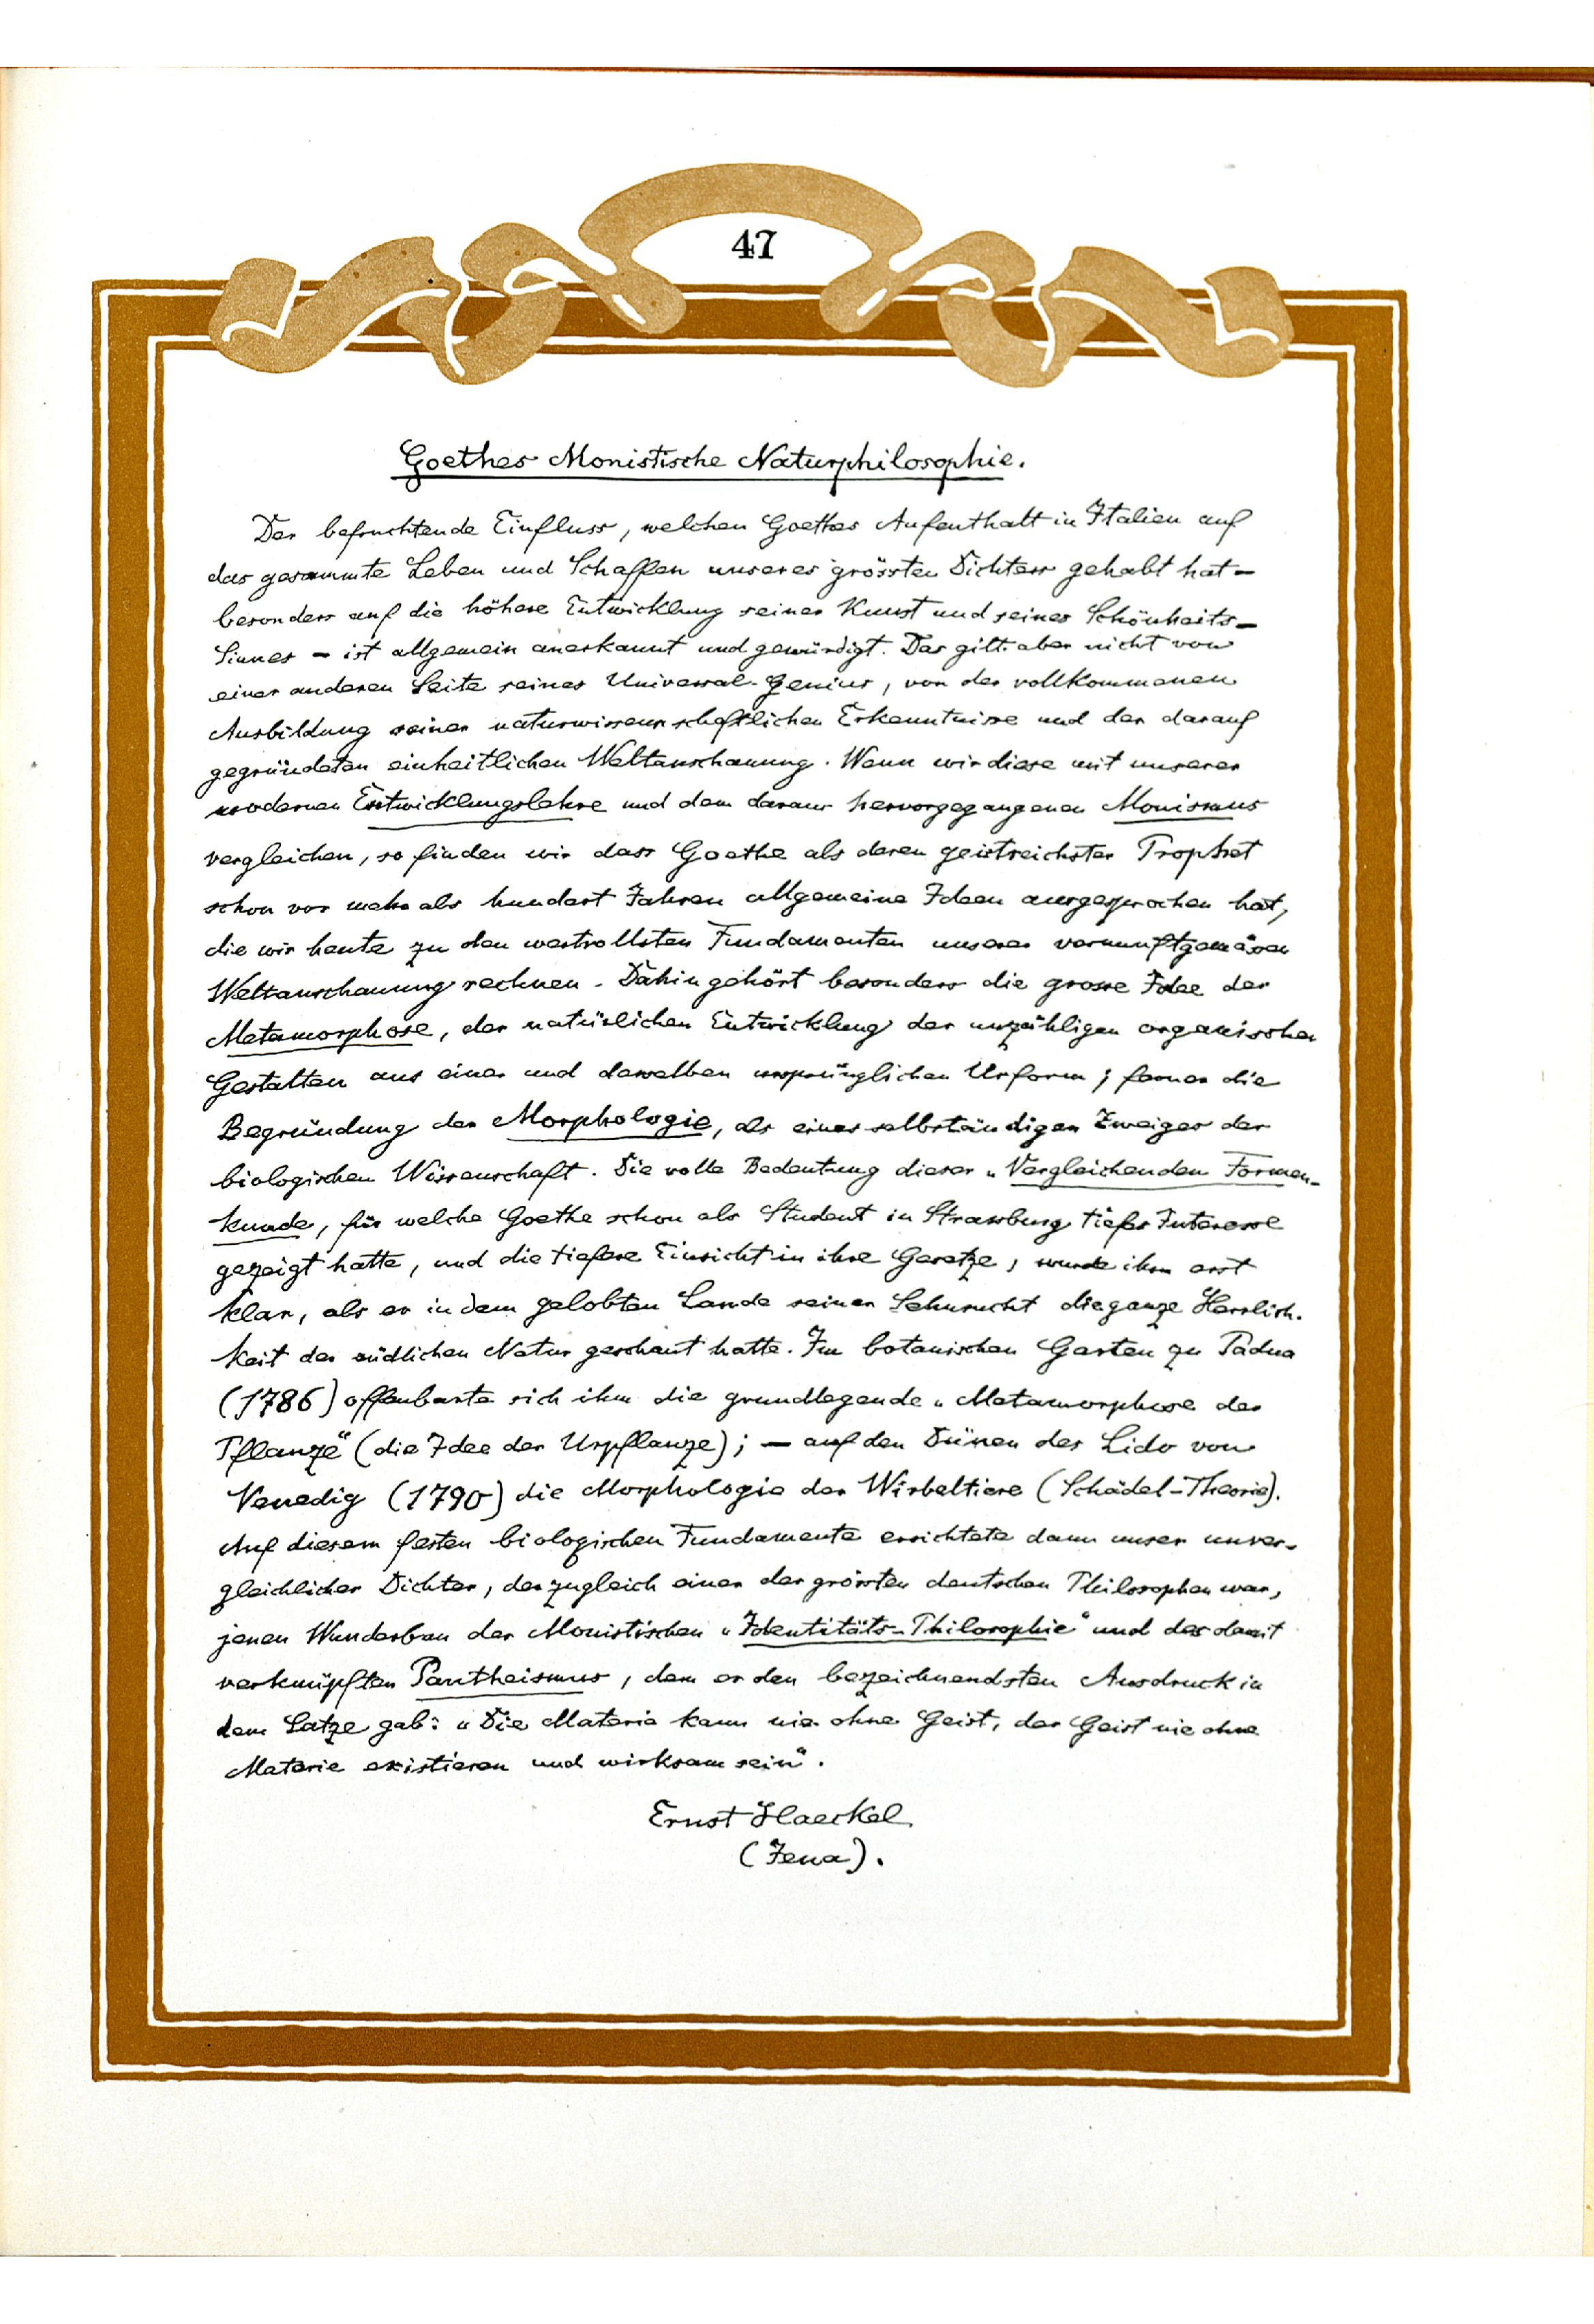 47
Goethes Monistische Naturphilosophie.
Der befruchtende Einfluss, welchen Goethes Aufenthalt in Italien auf
das gesammte Leben und Schaffen unseres grössten Dichters gehabt hat —
besonders auf die höhere Entwicklung seiner Kunst und seines Schönheits-
Sinnes — ist allgemein anerkannt und gewürdigt. Das gilt aber nicht von
einer anderen Seite seines Universal-Genius, von der vollkommenen
Ausbildung seiner naturwissenschaftlichen Erkenntnisse und der darauf
gegründeten einheitlichen Weltanschauung. Wenn wir diese mit unserer
modernen Entwicklungslehre und dem daraus hervorgegangenen Monismus
vergleichen, so finden wir dass Goethe als deren geistreichster Prophet
schon vor mehr als hundert Jahren allgemeine Ideen ausgesprochen hat,
die wir heute zu den wertvollsten Fundamenten unserer vernunftgemäsen
Weltanschauung rechnen. Dahin gehört besonders die grosse Idee der
Metamorphose, der natürlichen Entwicklung der unzähligen organischen
Gestalten aus einer und derselben ursprünglichen Urform; ferner die
Begründung der Morphologie, als eines selbständigen Zweiges der
biologischen Wissenschaft. Die volle Bedeutung dieser „Vergleichenden Formen-
kunde, für welche Goethe schon als Student in Strassburg tiefes Interesse
gezeigt hatte, und die tiefere Einsicht in ihre Gesetze, wurde ihm erst
klar, als er in dem gelobten Lande seiner Sehnsucht die ganze Herrlich-
keit der südlichen Natur geschaut hatte. Im botanischen Garten zu Padua
(1786) offenbarte sich ihm die grundlegende „Metamorphose der
Pflanze" (die Idee der Urpflanze); — auf den Dünen des Lido von
Venedig (1790) die Morphologie der Wirbeltiere (Schädel-Theorie).
Auf diesem festen biologischen Fundamente errichtete dann unser unver-
gleichlicher Dichter, der zugleich einer der grössten deutschen Philosophen war,
jenen Wunderbau der Monistischen „Identitäts-Philosophie" und des damit
verknüpften Pantheismus, dem er den bezeichnendsten Ausdruck in
dem Satze gab: „Die Materie kann nie ohne Geist, der Geist nie ohne
Materie existieren und wirksam sein".
Ernst Haeckel
(Jena).